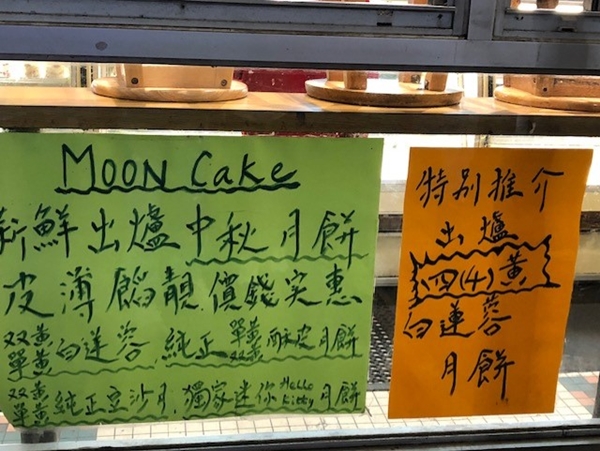 MOON Cake
新鮮出爐中秋月餅
皮薄餡靚價錢実惠
双黃單黃白莲蓉,純正單黃双黃酥皮月餅
双黃單黃純正豆沙月,獨家迷你Hello Kitty月餅
特別推介
出爐
四(4)黄
白蓮蓉
月餅